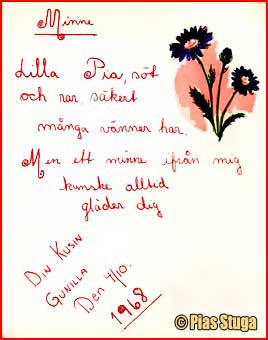 Minne
Lilla Pia, söt
och rar, säkert
många vänner har.
Men ett minne ifrån mig
kanske alltid
gläder dig
Din Kusin
Gunilla
Den 4/10.
1968
© Pias Stuga